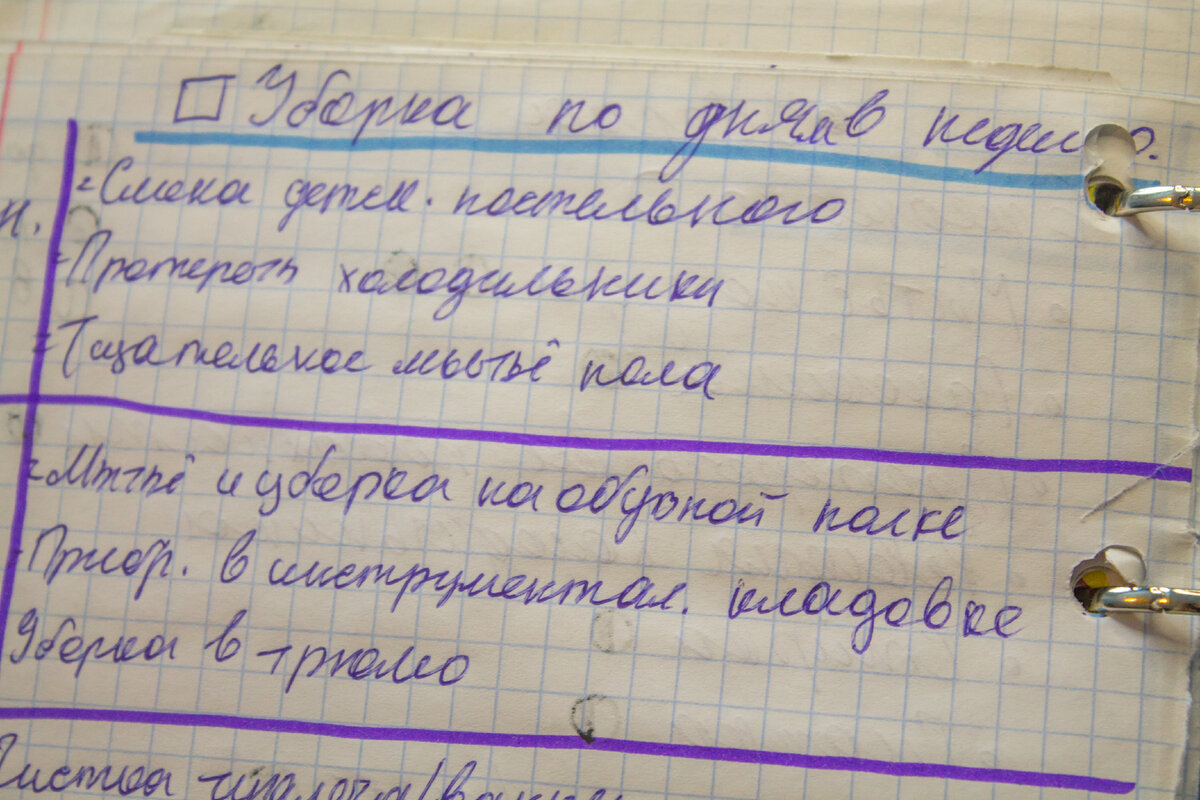 Уборка по дням недели.
н. - Смена детск. постельного
- Протереть холодильники
- Тщательное мытьё пола
- Мытьё и уборка на обувной полке
- Прибр. в инструментал. кладовке
Уборка в трюмо
Чистка